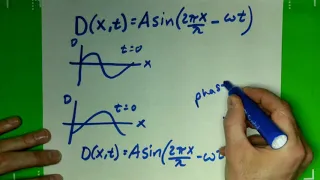 D(x,t)=Asin(2πx/λ - ωt)
D
t=0
x
D
t=0
x
phas
D(x,t)=Asin(2πx/λ - ω